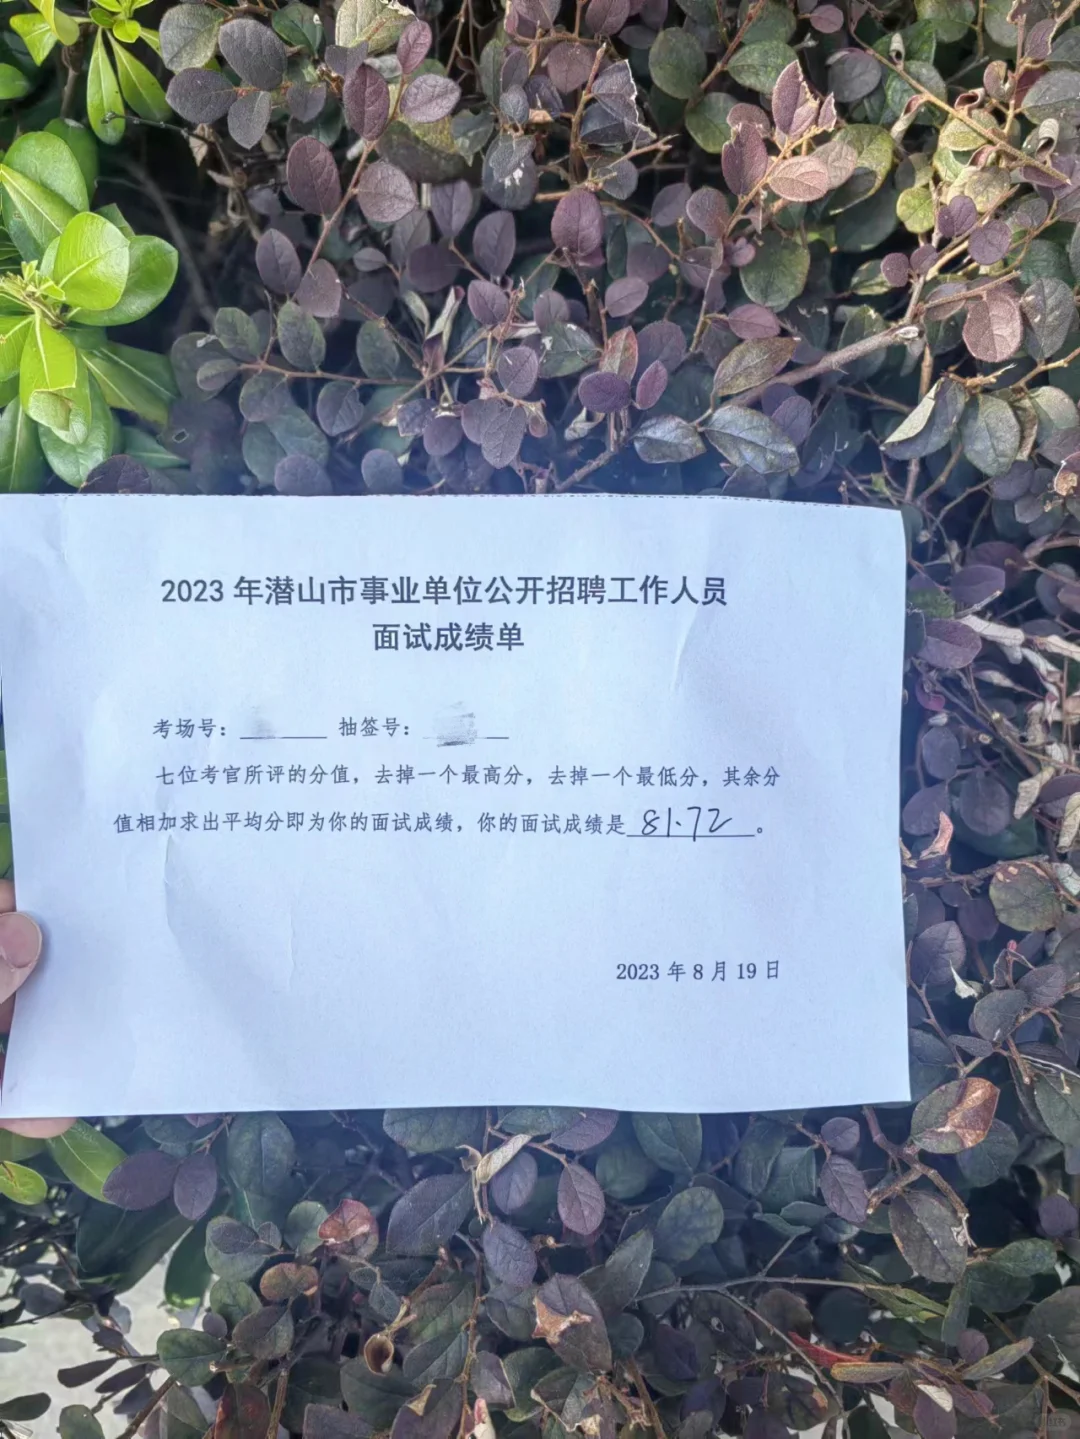 2023年潜山市事业单位公开招聘工作人员
面试成绩单
考场号： 抽签号：
七位考官所评的分值，去掉一个最高分，去掉一个最低分，其余分
值相加求出平均分即为你的面试成绩，你的面试成绩是 81.72 。
2023年8月19日